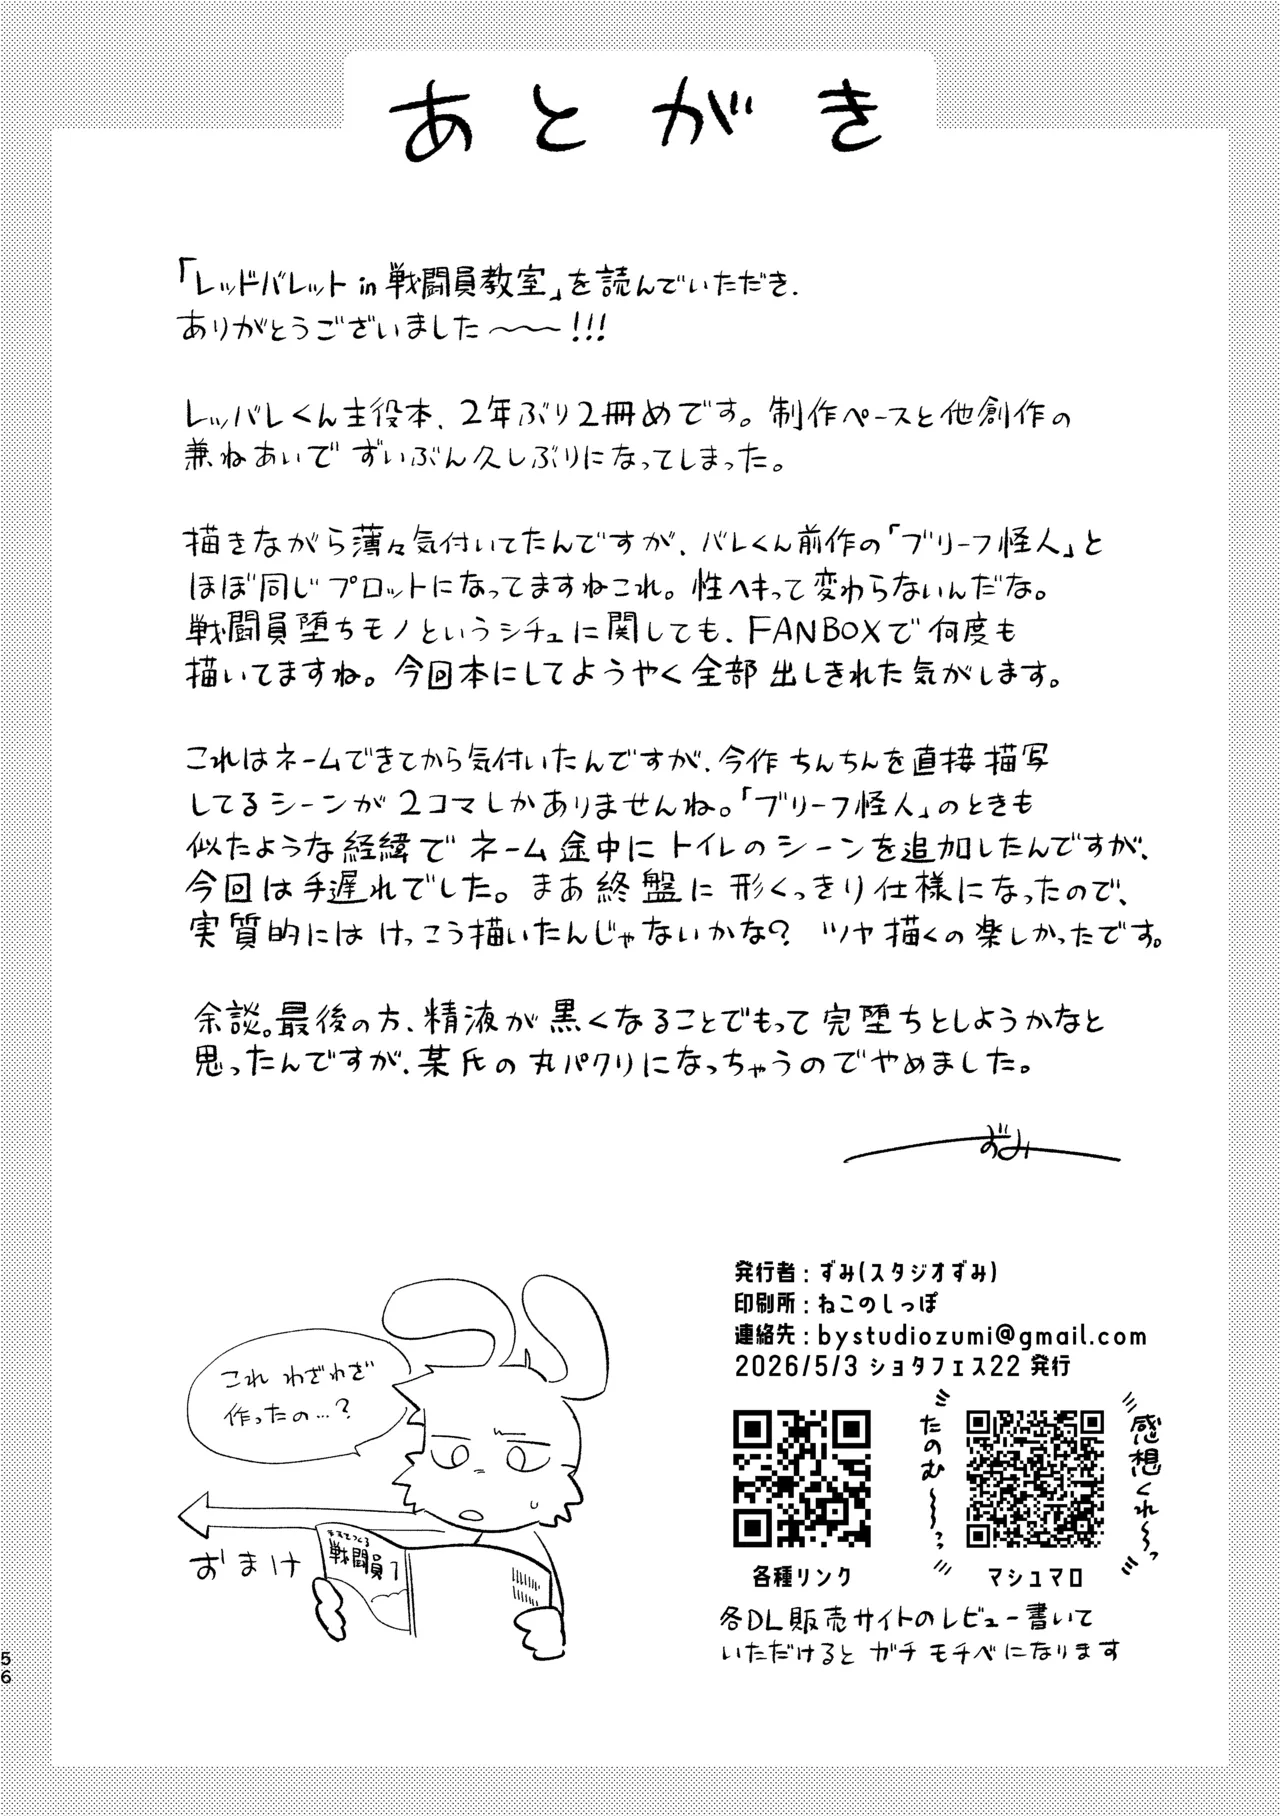 あとがき
「レッドバレット in 戦闘員教室」を読んでいただき、
ありがとうございました〜〜〜!!!
レッバレくん主役本、2年ぶり2冊めです。制作ペースと他創作の
兼ねあいで ずいぶん久しぶりになってしまった。
描きながら薄々気付いてたんですが、バレくん前作の「ブリーフ怪人」と
ほぼ同じプロットになってますねこれ。性ヘキって変わらないんだな。
戦闘員堕ちモノというシチュに関しても、FANBOXで何度も
描いてますね。今回本にしてようやく全部出しきれた気がします。
これはネームできてから気付いたんですが、今作ちんちんを直接描写
してるシーンが2コマしかありませんね。「ブリーフ怪人」のときも
似たような経緯でネーム途中にトイレのシーンを追加したんですが、
今回は手遅れでした。まあ終盤に形くっきり仕様になったので、
実質的にはけっこう描いたんじゃないかな? ツヤ描くの楽しかったです。
余談。最後の方、精液が黒くなることでもって完堕ちとしようかなと
思ったんですが、某氏の丸パクリになっちゃうのでやめました。
ずみ
発行者：ずみ(スタジオずみ)
印刷所：ねこのしっぽ
連絡先：bystudiozumi@gmail.com
2026/5/3 ショタフェス22 発行
感想くれ〜〜っ
たのむ〜〜〜っ
各種リンク
マシュマロ
各DL販売サイトのレビュー書いて
いただけると ガチ モチベになります
これ わざわざ
作ったの…?
おまけ
戦闘員1
56